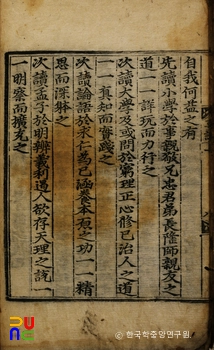 自我何益之有
先讀小學於事親敬兄忠君弟長隆師親友之
道一一詳玩而力行之
次讀大學及或問於窮理正心修己治人之道
一一真知而實踐之
次讀論語於求仁爲己涵養本原之功一一精
思而深軆之
次讀孟子於明辨義利遏人欲存天理之說一
一明察而擴充之
PUNC
한국학중앙연구원